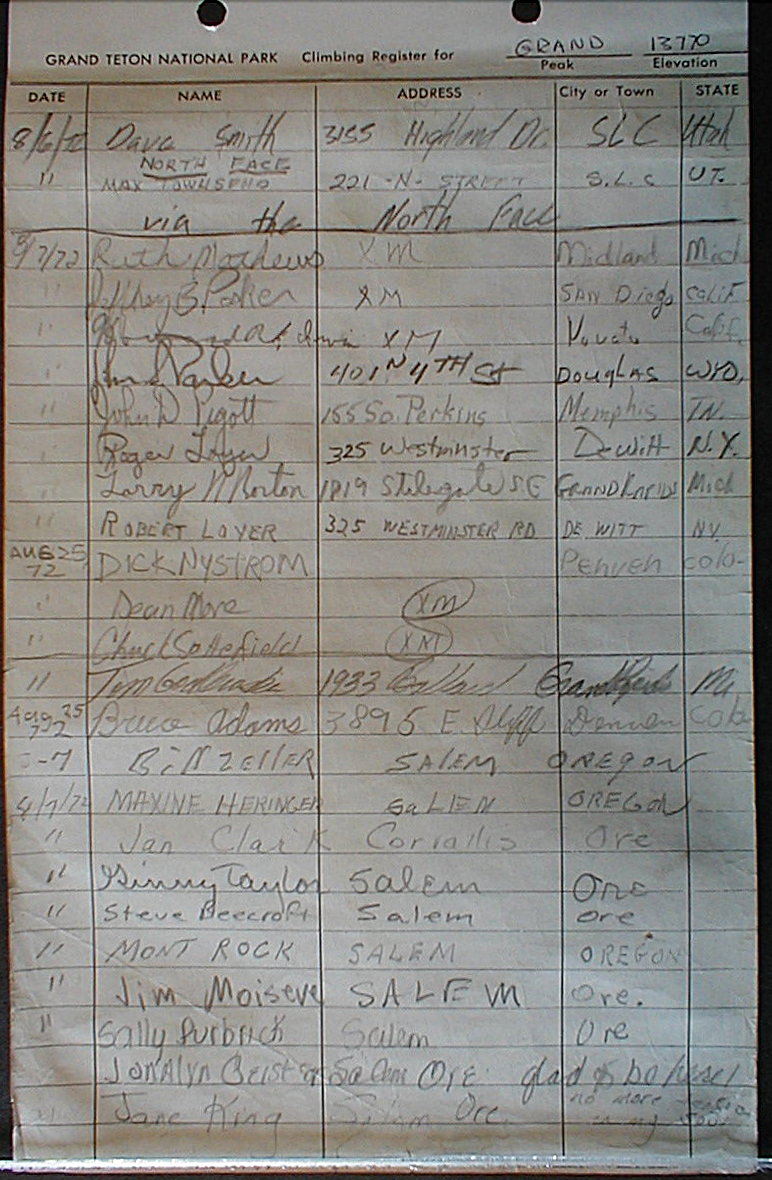 GRAND TETON NATIONAL PARK Climbing Register for GRAND 13770
Peak Elevation
DATE NAME ADDRESS City or Town STATE
8/6/72 Dave Smith 3155 Highland Dr. SLC Utah
NORTH FACE
" MAX TOWNSEND 221 -N- STREET S.L.C UT.
via the North Face
8/7/72 Ruth Mathews XM Midland Mich
" Jeffrey B. Parker XM SAN Diego CALIF
" XM Calif.
" Parker 401 N 4TH St DOUGLAS WYO.
" John D Pigott 155 So. Perkins Memphis TN.
" Roger Loyer 325 Westminster DeWitt N.Y.
" Larry N Morton 1819 S.E GRAND RAPIDS Mich
" ROBERT LOYER 325 WESTMINSTER RD DE WITT NY
AUG 25, 72 DICK NYSTROM Denver Colo-
" Dean More XM
" Chuck XM
" Tom 1933 Grand Rapids Mi
Aug 25 72 Bruce Adams 3895 E. Denver Colo
-7 Bill ZELLER SALEM OREGON
MAXINE HERINGER SaLEM OREGON
" Jan Clark Corvallis Ore
" Ginny Taylor Salem Ore
" Steve Beecroft Salem ore
" MONT ROCK SALEM OREGON
" Jim SALEM Ore.
" Sally Purbrick Salem Ore
Jonalyn Salem Ore glad to be here!
Jane King Salem Ore. no more
in my